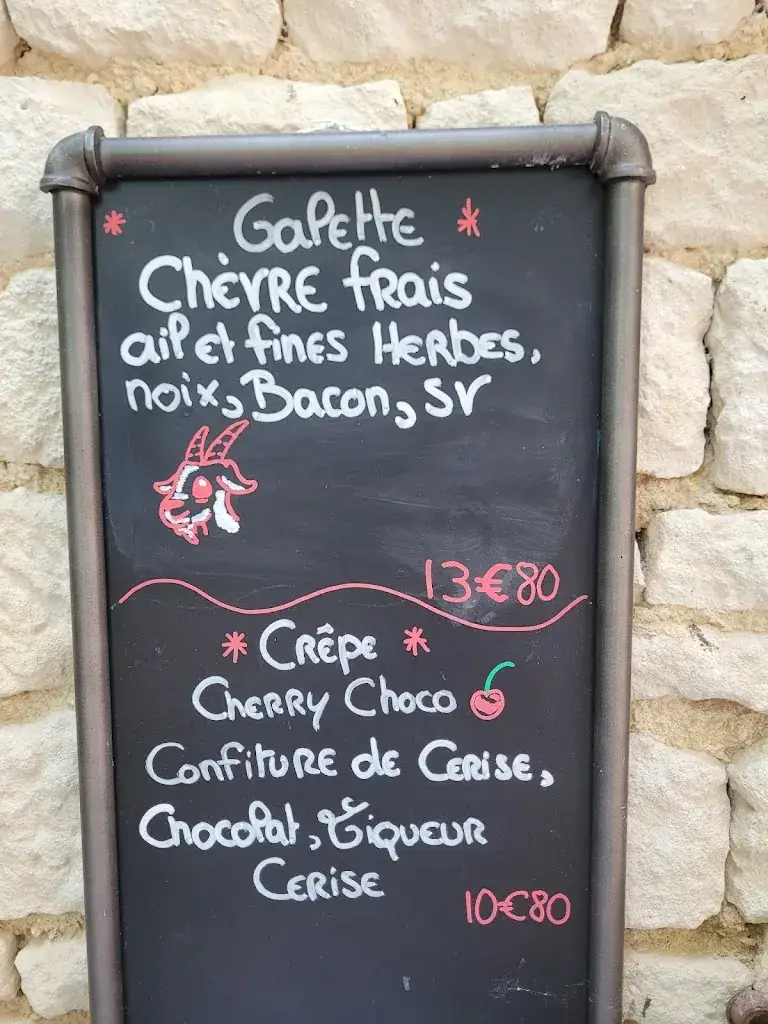 * Galette *
Chèvre frais
ail et fines Herbes,
noix, Bacon, SV
13€80
* Crêpe *
Cherry Choco
Confiture de Cerise,
Chocolat, Liqueur
Cerise
10€80